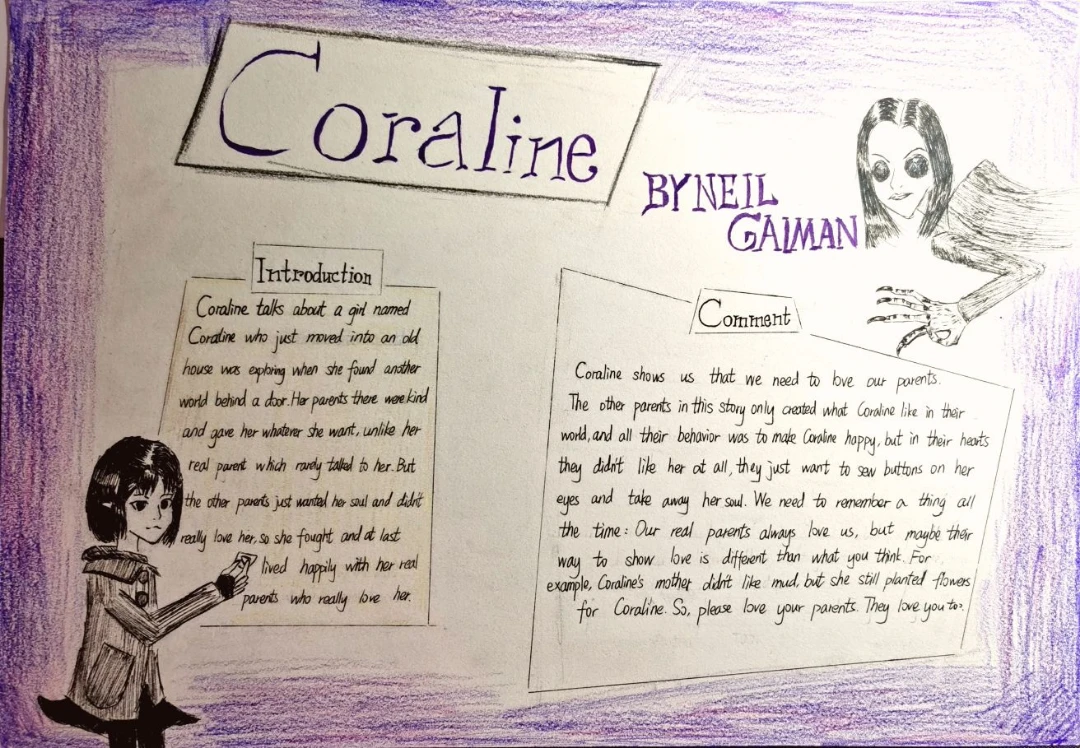 Coraline
BY NEIL
GAIMAN
Introduction
Coraline talks about a girl named
Coraline who just moved into an old
house was exploring when she found another
world behind a door. Her parents there were kind
and gave her whatever she want, unlike her
real parent which rarely talked to her. But
the other parents just wanted her soul and didn't
really love her, so she fought and at last
lived happily with her real
parents who really love her.
Comment
Coraline shows us that we need to love our parents.
The other parents in this story only created what Coraline like in their
world, and all their behavior was to make Coraline happy, but in their hearts
they didn't like her at all, they just want to sew buttons on her
eyes and take away her soul. We need to remember a thing all
the time: Our real parents always love us, but maybe their
way to show love is different than what you think. For
example, Coraline's mother didn't like mud, but she still planted flowers
for Coraline. So, please love your parents. They love you too.